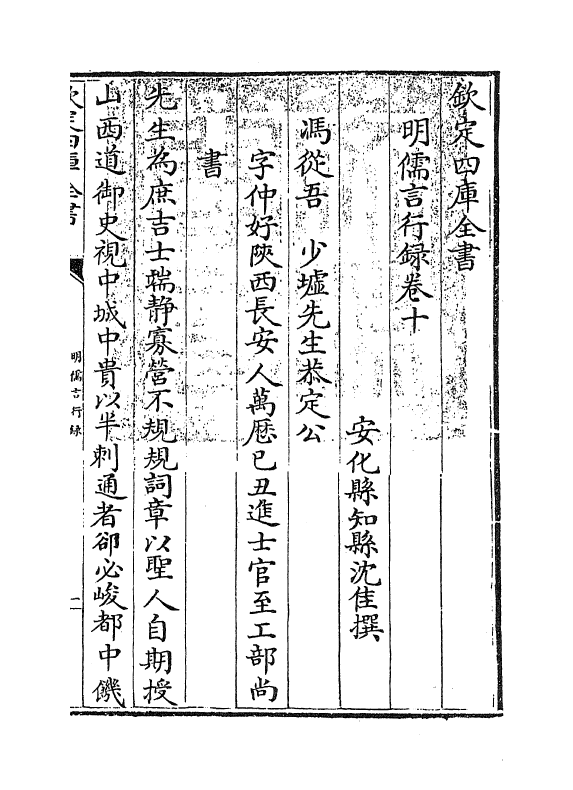 欽定四庫全書
明儒言行録卷十
安化縣知縣沈佳撰
馮從吾　少墟先生恭定公
字仲好陜西長安人萬厯己丑進士官至工部尚
書
先生為庶吉士端静寡營不規規詞章以聖人自期授
山西道御史視中城中貴以半刺通者郤必峻都中饑
欽定四庫全書
明儒言行録